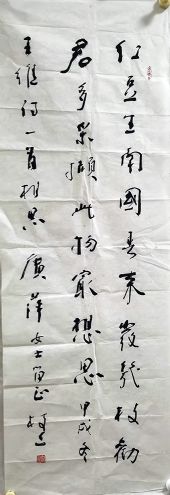 红豆生南國春来發幾枝勸
君多采擷此物最想思甲戌冬
王維诗一首相思 廣萍女士留正